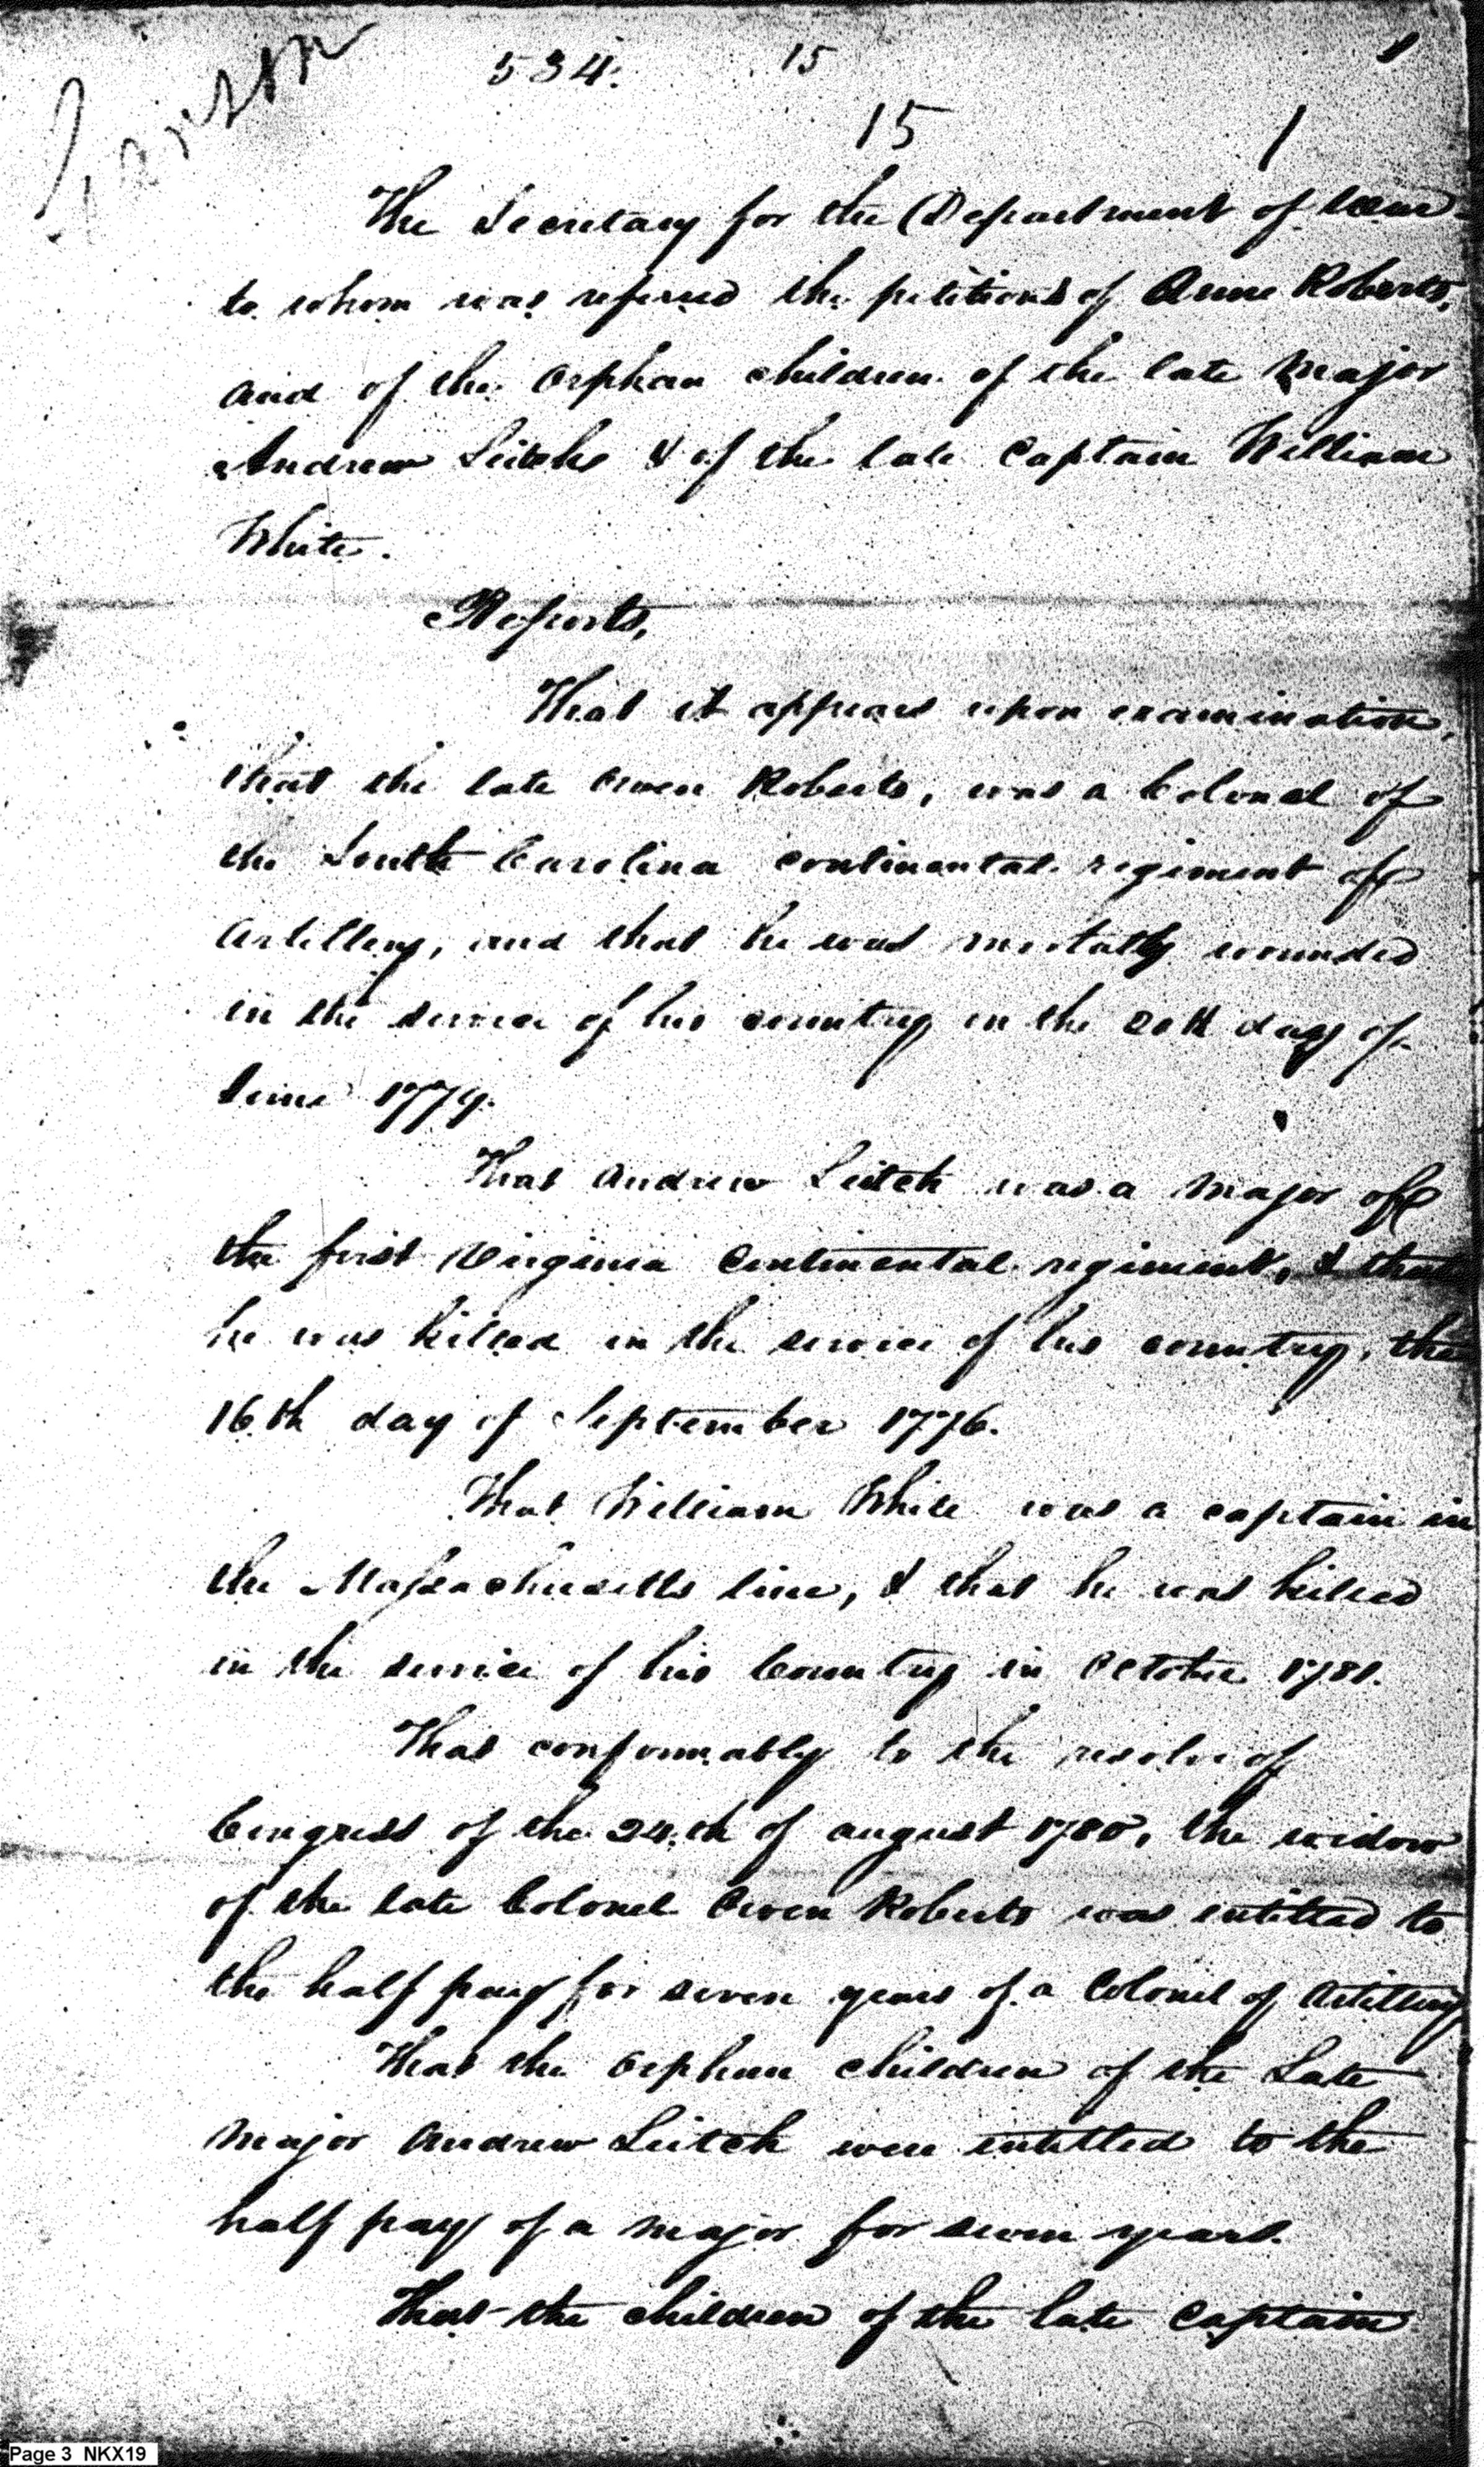 534.
15
1
15
1
The Secretary for the Department of war
to whom was referred the petitions of Anne Roberts,
and of the Orphan children of the late Major
Andrew Leitche & of the late Captain William
White.
Reports,
That it appears upon examination,
that the late Owen Roberts, was a Colonel of
the South Carolina continental regiment of
Artillery, and that he was mortally wounded
in the service of his country in the 20th day of
June 1779.
That Andrew Leitch was a Major of
the first Virginia Continental regiment, & that
he was killed in the service of his country, the
16th day of September 1776.
That William White was a captain in
the Massachusetts line, & that he was killed
in the service of his Country in October 1781.
That conformably to the resolve of
Congress of the 24th of august 1780, the widow
of the late Colonel Owen Roberts was intitled to
the half pay for seven years of a Colonel of Artillery
That the Orphan children of the Late
Major Andrew Leitch were intitled to the
half pay of a Major for seven years.
That the children of the late Captain
Page 3 NKX19